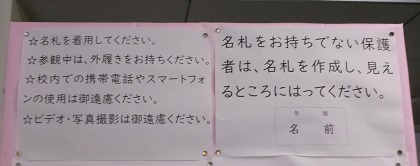 ☆名札を着用してください。
☆参観中は、外履きをお持ちください。
☆校内での携帯電話やスマートフォ
ンの使用は御遠慮ください。
☆ビデオ・写真撮影は御遠慮ください。
名札をお持ちでない保護
者は、名札を作成し、見え
るところにはってください。
年 組
名 前